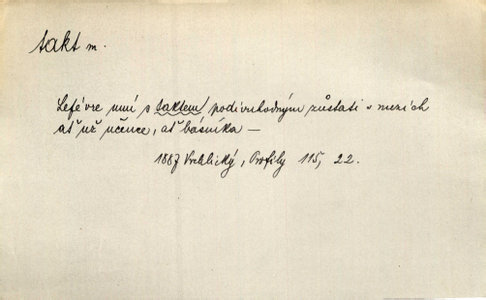 takt m.
Lefévre umí s taktem podivuhodným zůstati v mezích
ať už učence, ať básníka —
1887 Vrchlický, Profily 115, 22.